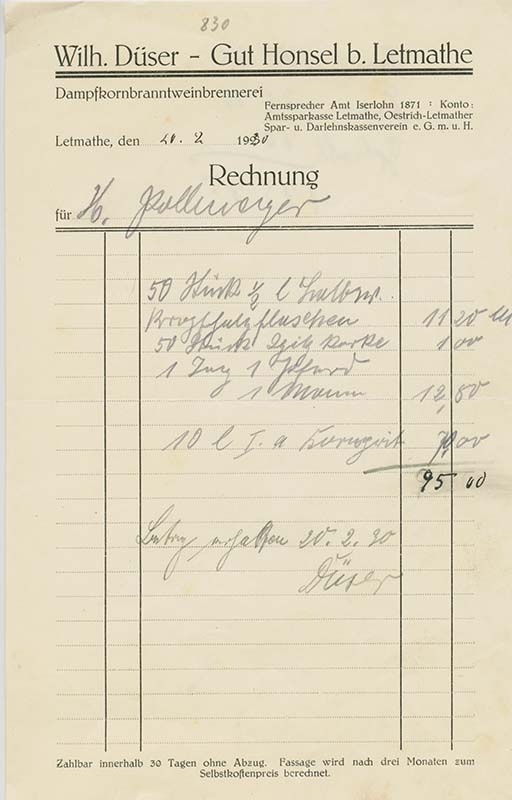 830
Wilh. Düser – Gut Honsel b. Letmathe
Dampfkornbranntweinbrennerei
Fernsprecher Amt Iserlohn 1871 : Konto:
Amtssparkasse Letmathe, Oestrich-Letmather
Spar- u. Darlehnskassenverein e. G. m. u. H.
Letmathe, den 20. 2 1930
Rechnung
für H. Pollmeyer
50 Stück ½ l
11 20 M
50 Stück Spitzkorke 1 00
1 Tag 1 Pferd
1 Mann 12,80
10 l I. a 70,00
95 00
Betrag erhalten 20. 2. 30
Düser
Zahlbar innerhalb 30 Tagen ohne Abzug. Fassage wird nach drei Monaten zum
Selbstkostenpreis berechnet.